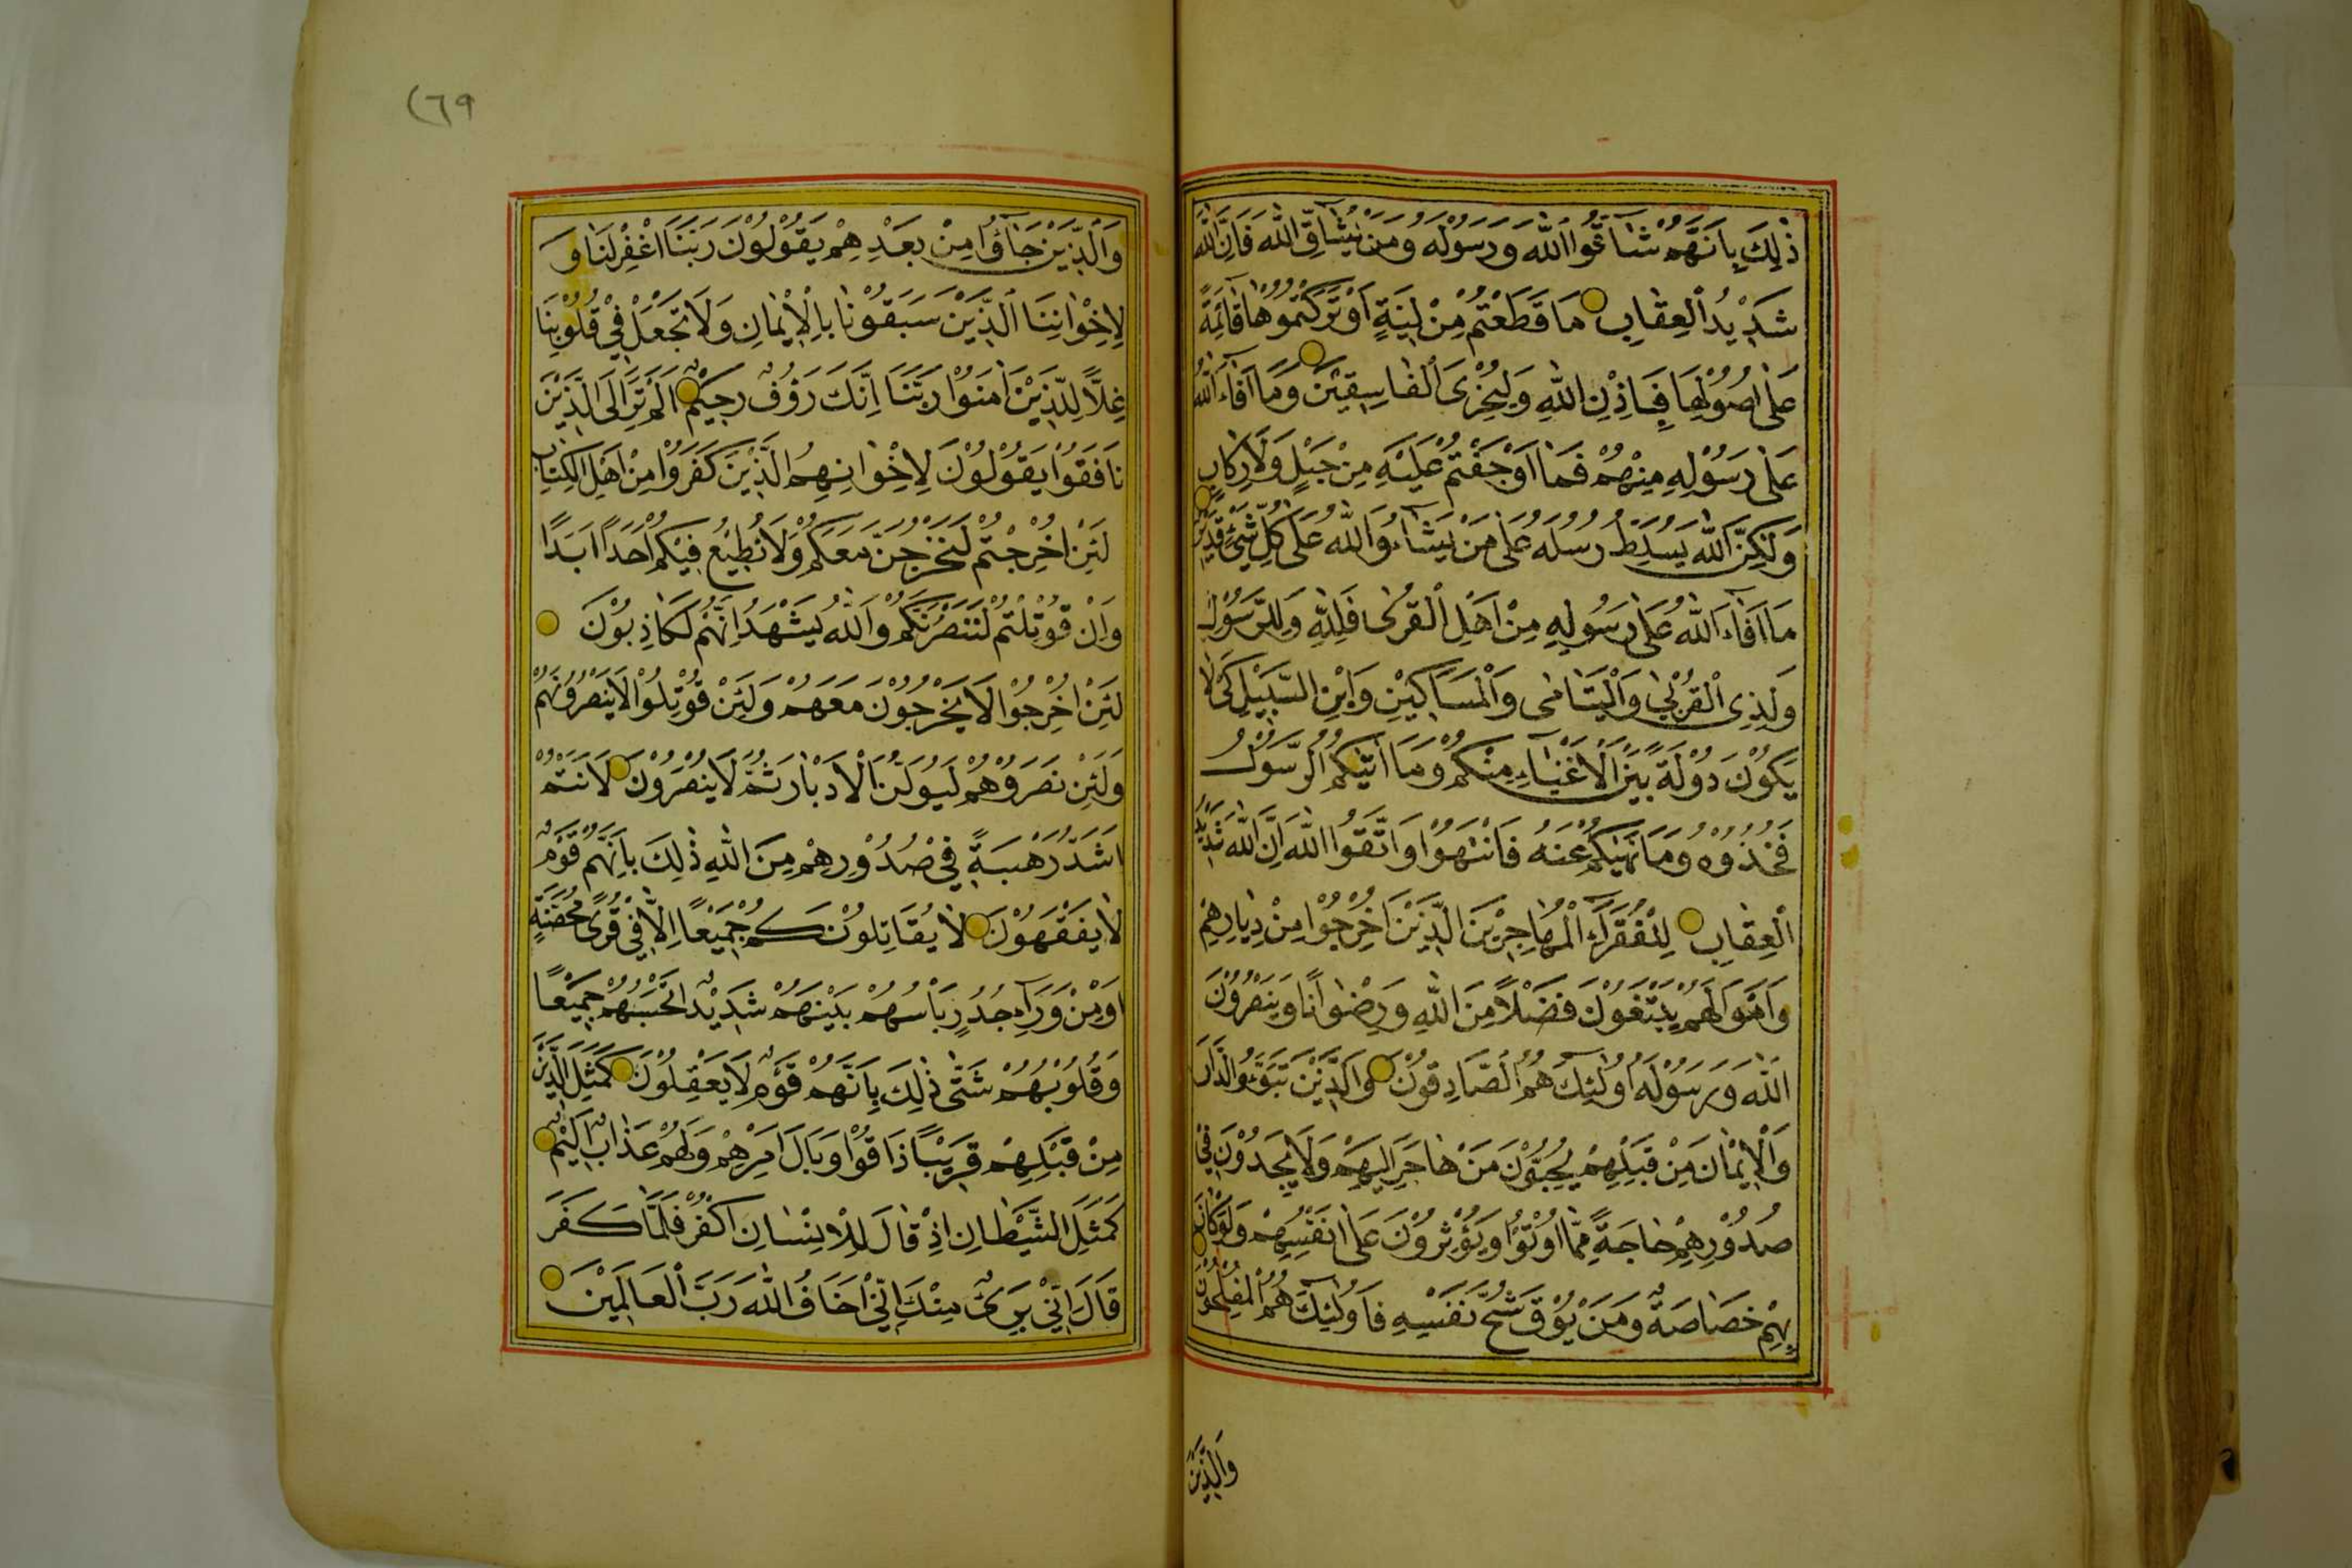 ذٰلِكَ بِاَنَّهُمْ شَاقُّوا اللّٰهَ وَرَسُولَهُ وَمَنْ يُشَاقِّ اللّٰهَ فَاِنَّ اللّٰهَ
شَدِيْدُ الْعِقٰابِ مَا قَطَعْتُمْ مِنْ لِيْنَةٍ اَوْ تَرَكْتُمُوْهٰا قَائِمَةً
عَلٰى اُصُوْلِهٰا فَبِاِذْنِ اللّٰهِ وَلِيُخْزِىَ الْفٰاسِقِيْنَ وَمَا اَفَاءَ اللّٰهُ
عَلٰى رَسُوْلِهِ مِنْهُمْ فَمَا اَوْجَفْتُمْ عَلَيْهِ مِنْ خَيْلٍ وَلَا رِكَابٍ
وَلٰكِنَّ اللّٰهَ يُسَلِّطُ رُسُلَهُ عَلٰى مَنْ يَشَاءُ وَاللّٰهُ عَلٰى كُلِّ شَيْءٍ قَدِيْرٌ
مَا اَفَاءَ اللّٰهُ عَلٰى رَسُولِهِ مِنْ اَهْلِ الْقُرٰى فَلِلّٰهِ وَلِلرَّسُوْلِ
وَلِذِى الْقُرْبٰى وَالْيَتَامٰى وَالْمَسَاكِيْنِ وَابْنِ السَّبِيْلِ كَىْ لَا
يَكُوْنَ دُوْلَةً بَيْنَ الْاَغْنِيَاءِ مِنْكُمْ وَمَا اٰتٰيكُمُ الرَّسُوْلُ
فَخُذُوْهُ وَمَا نَهٰيكُمْ عَنْهُ فَانْتَهُوْا وَاتَّقُوا اللّٰهَ اِنَّ اللّٰهَ شَدِيْدُ
الْعِقٰابِ لِلْفُقَرَاءِ الْمُهٰاجِرِيْنَ الَّذِيْنَ اُخْرِجُوْا مِنْ دِيٰارِهِمْ
وَاَمْوَالِهِمْ يَبْتَغُوْنَ فَضْلًا مِنَ اللّٰهِ وَرِضْوٰانًا وَيَنْصُرُوْنَ
اللّٰهَ وَرَسُوْلَهُ اُولٰئِكَ هُمُ الصَّادِقُوْنَ وَالَّذِيْنَ تَبَوَّؤُ الدَّارَ
وَالْاِيْمٰانَ مِنْ قَبْلِهِمْ يُحِبُّوْنَ مَنْ هٰاجَرَ اِلَيْهِمْ وَلَا يَجِدُوْنَ فِىْ
صُدُوْرِهِمْ حٰاجَةً مِمَّا اُوْتُوْا وَيُؤْثِرُوْنَ عَلٰى اَنْفُسِهِمْ وَلَوْ كَانَ
بِهِمْ خَصَاصَةٌ وَمَنْ يُوْقَ شُحَّ نَفْسِهِ فَاُولٰئِكَ هُمُ الْمُفْلِحُوْنَ
وَالَّذِيْنَ
٢٦٩
وَالَّذِيْنَ جَاؤُا مِنْ بَعْدِهِمْ يَقُوْلُوْنَ رَبَّنَا اغْفِرْ لَنَا وَ
لِاِخْوٰانِنَا الَّذِيْنَ سَبَقُوْنَا بِالْاِيْمٰانِ وَلَا تَجْعَلْ فِىْ قُلُوْبِنَا
غِلًّا لِلَّذِيْنَ اٰمَنُوْا رَبَّنَا اِنَّكَ رَؤُفٌ رَحِيْمٌ اَلَمْ تَرَ اِلَى الَّذِيْنَ
نَافَقُوْا يَقُوْلُوْنَ لِاِخْوٰانِهِمُ الَّذِيْنَ كَفَرُوْا مِنْ اَهْلِ الْكِتٰابِ
لَئِنْ اُخْرِجْتُمْ لَنَخْرُجَنَّ مَعَكُمْ وَلَا نُطِيْعُ فِيْكُمْ اَحَدًا اَبَدًا
وَاِنْ قُوْتِلْتُمْ لَنَنْصُرَنَّكُمْ وَاللّٰهُ يَشْهَدُ اِنَّهُمْ لَكَاذِبُوْنَ
لَئِنْ اُخْرِجُوْا لَا يَخْرُجُوْنَ مَعَهُمْ وَلَئِنْ قُوْتِلُوْا لَا يَنْصُرُوْنَهُمْ
وَلَئِنْ نَصَرُوْهُمْ لَيُوَلُّنَّ الْاَدْبٰارَ ثُمَّ لَا يُنْصَرُوْنَ لَاَنْتُمْ
اَشَدُّ رَهْبَةً فِىْ صُدُوْرِهِمْ مِنَ اللّٰهِ ذٰلِكَ بِاَنَّهُمْ قَوْمٌ
لَا يَفْقَهُوْنَ لَا يُقَاتِلُوْنَكُمْ جَمِيْعًا اِلَّا فِىْ قُرًى مُحَصَّنَةٍ
اَوْ مِنْ وَرَاءِ جُدُرٍ بَأْسُهُمْ بَيْنَهُمْ شَدِيْدٌ تَحْسَبُهُمْ جَمِيْعًا
وَقُلُوْبُهُمْ شَتّٰى ذٰلِكَ بِاَنَّهُمْ قَوْمٌ لَا يَعْقِلُوْنَ كَمَثَلِ الَّذِيْنَ
مِنْ قَبْلِهِمْ قَرِيْبًا ذَاقُوْا وَبَالَ اَمْرِهِمْ وَلَهُمْ عَذَابٌ اَلِيْمٌ
كَمَثَلِ الشَّيْطٰانِ اِذْ قٰالَ لِلْاِنْسٰانِ اكْفُرْ فَلَمَّا كَفَرَ
قَالَ اِنِّىْ بَرِىْءٌ مِنْكَ اِنِّىْ اَخَافُ اللّٰهَ رَبَّ الْعَالَمِيْنَ